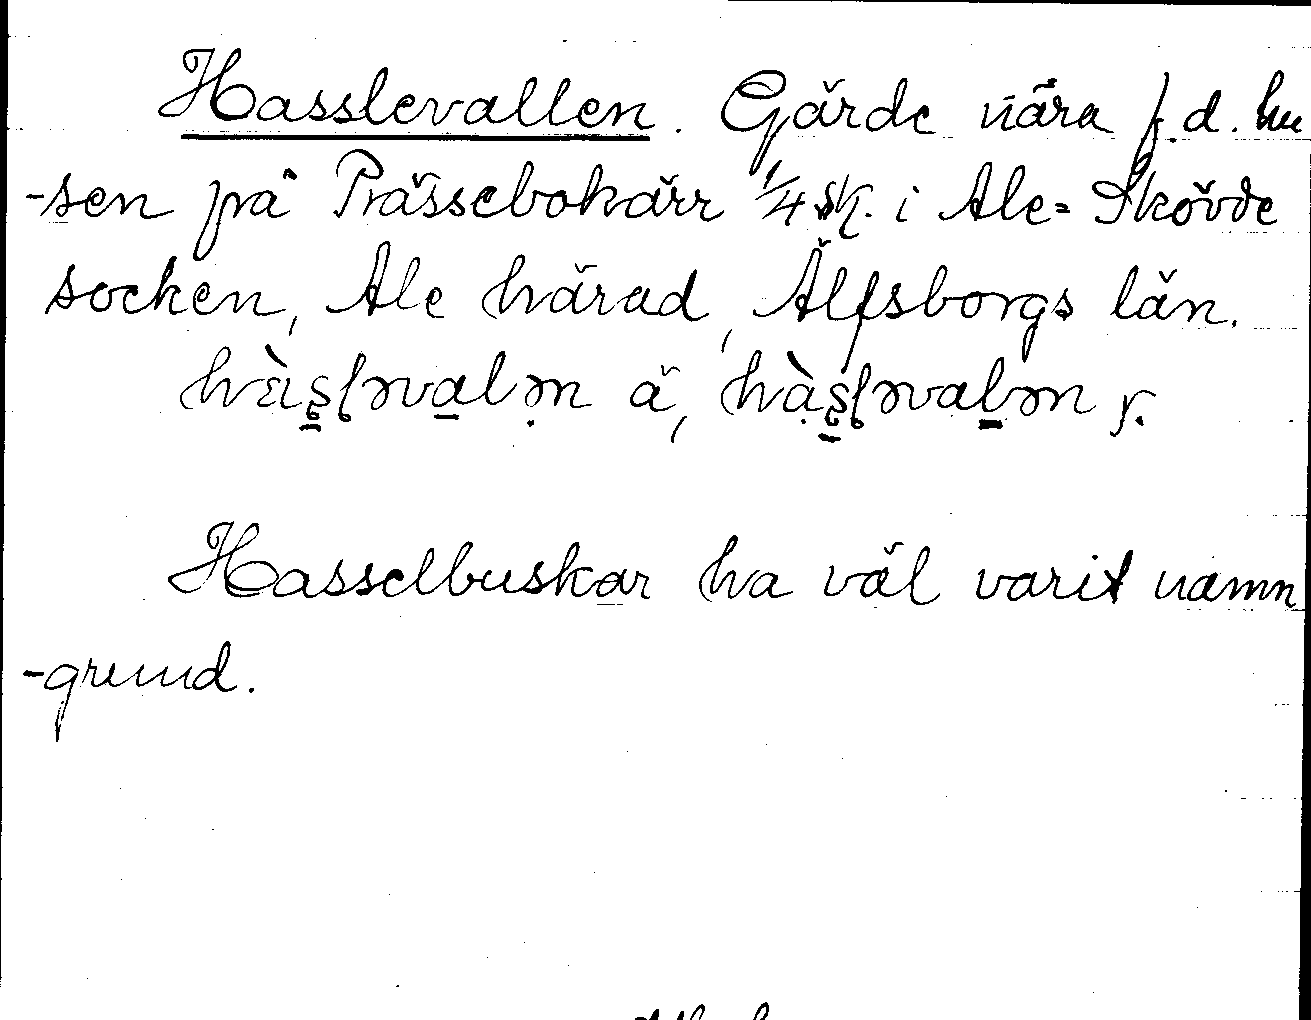 Hasslevallen. Gärde nära f.d. hu
-sen på Prässebokärr 1/4 sk. i Ale-Skövde
socken, Ale härad, Älfsborgs län.
ä, y.
Hasselbuskar ha väl varit namn
-grund.